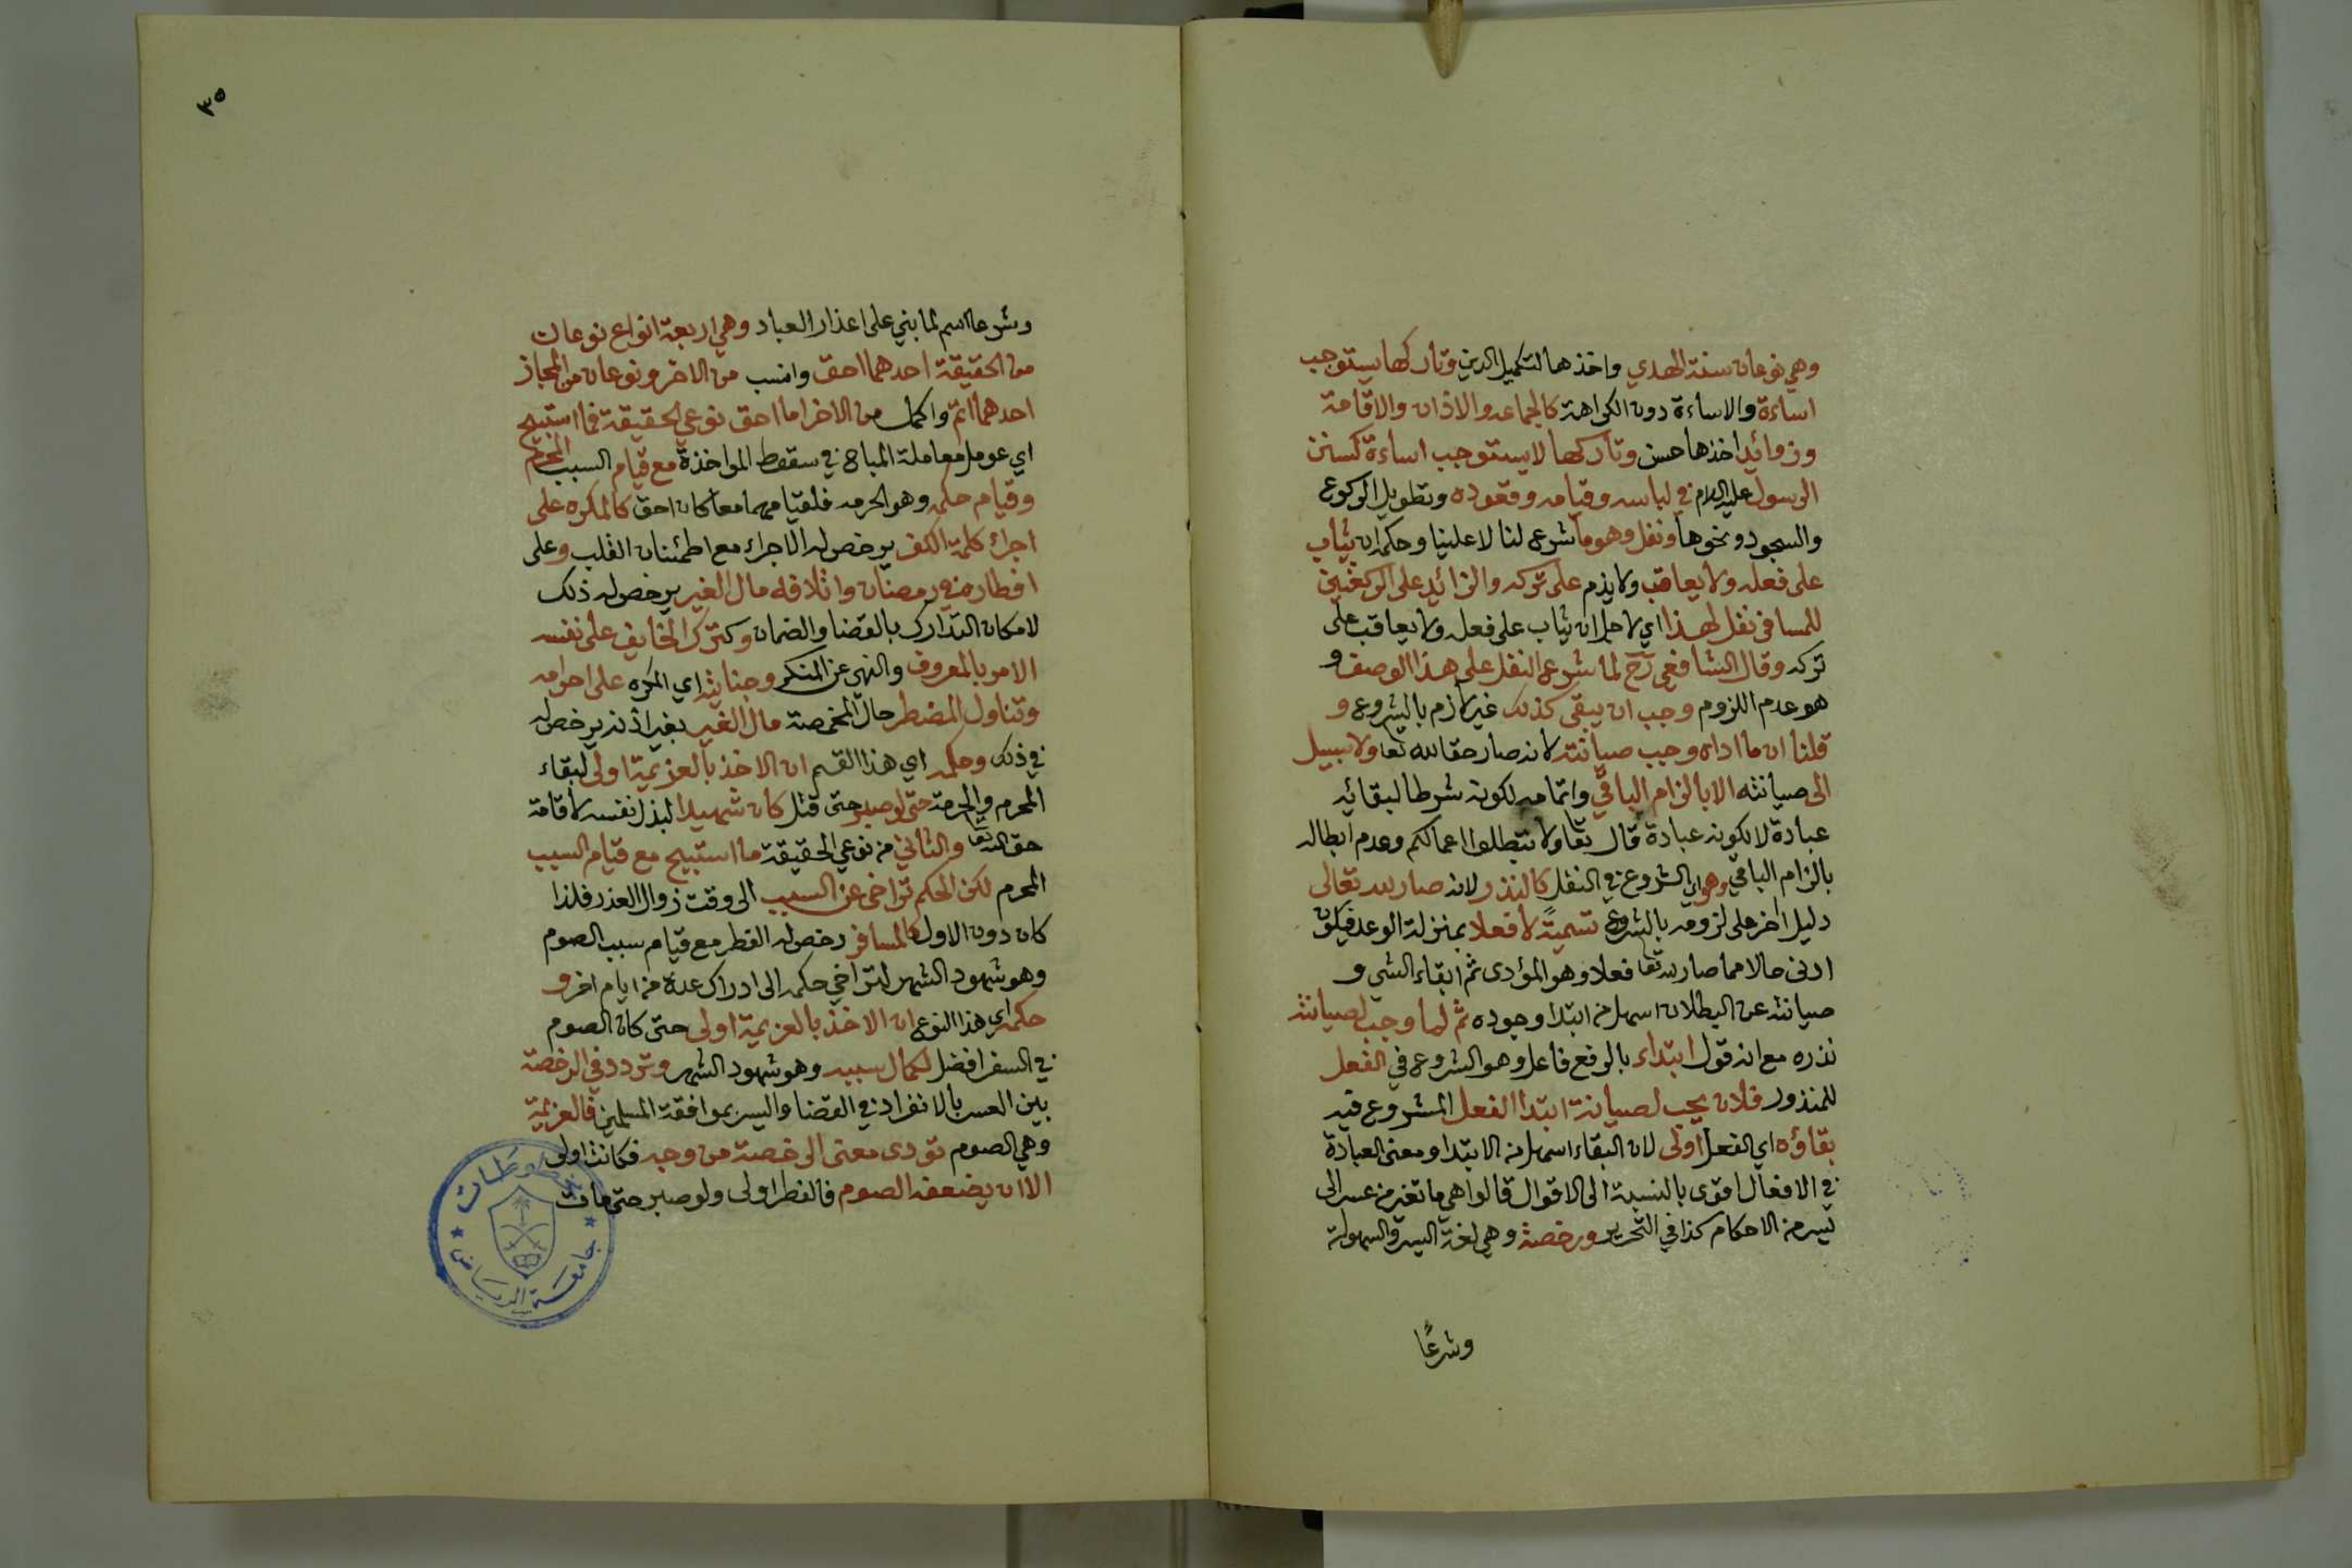 وهي نوعان سنة الهدي واخذها لتكميل الدين وتاركها يستوجب
اساءة والاساءة دون الكراهة كالجماعه والاذان والاقامة
وزوائد اخذها حسن وتاركها لا يستوجب اساءة كسنن
الرسول عليه السلام في لباسه وقيامه وقعوده وتطويل الركوع
والسجود ونحوها ونفل وهو ما شرع لنا لا علينا وحكمه ان يثاب
على فعله ولا يعاقب ولا يذم على تركه والزائد على الركعتين
للمسافر نفل لهذا اي لاجل ان يثاب على فعله ولا يعاقب على
تركه وقال الشافعي رح لما شرع النفل على هذا الوصف و
هو عدم اللزوم وجب ان يبقى كذلك غير لازم بالشروع و
قلنا ان ما اداه وجب صيانته لانه صار حقا لله تعا ولا سبيل
الى صيانته الا بالزام الباقي واتمامه لكونه شرطا لبقائه
عبادة لا لكونه عبادة قال تعا ولا تبطلوا اعمالكم وعدم ابطاله
بالزام الباقي وهو اي الشروع في النفل كالنذر لانه صار لله تعالى
دليل اخر على لزومه بالشروع تسمية لا فعلا بمنزلة الوعد فيكون
ادنى حالا مما صار لله تعا فعلا وهو المؤدى ثم ابقاء الشي و
صيانته عن البطلان اسهل من ابتدا وجوده ثم لما وجب لصيانته
نذره مع انه قول ابتداء بالرفع فاعل وهو الشروع في الفعل
للمنذور فلان يجب لصيانة ابتدا الفعل المشروع فيه
بقاؤه اي الفعل اولى لان البقاء اسهل من الابتدا ومعنى العبادة
في الافعال اقوى بالنسبة الى الاقوال قالوا هي ما تغير من عسر الى
يسر من الاحكام كذا في التحرير ورخصة وهي لغة اليسر والسهولة
وشرعًا
٣٥
وشرعا اسم لما بني على اعذار العباد وهي اربعة انواع نوعان
من الحقيقة احدهما احق وانسب من الاخر ونوعان من المجاز
احدهما اتم واكمل من الاخر اما احق نوعي الحقيقة فما استبيح
اي عومل معاملة المباح في سقوط المواخذة مع قيام السبب المحرم
وقيام حكمه وهو الحرمه فلقيامهما معا كان احق كالمكره على
اجراء كلمة الكفر يرخص له الاجراء مع اطمئنان القلب وعلى
افطاره في رمضان واتلافه مال الغير يرخص له ذلك
لامكان التدارك بالقضا والضمان وكترك الخايف على نفسه
الامر بالمعروف والنهي عن المنكر وجنايته اي المكره على احرامه
وتناول المضطر حال المخمصة مال الغير بغير اذنه يرخص له
في ذلك وحكمه اي هذا القسم ان الاخذ بالعزيمة اولى لبقاء
المحرم والحرمة حتى لو صبر حتى قتل كان شهيدا لبذل نفسه لاقامة
حق الله تعا والثاني من نوعي الحقيقة ما استبيح مع قيام السبب
المحرم لكن الحكم تراخى عن السبب الى وقت زوال العذر فلذا
كان دون الاول كالمسافر رخص له الفطر مع قيام سبب الصوم
وهو شهود الشهر لتراخي حكمه الى ادراك عدة من ايام اخر و
حكمه اي هذا النوع ان الاخذ بالعزيمة اولى حتى كان الصوم
في السفر افضل لكمال سببه وهو شهود الشهر وتردد في الرخصة
بين العسر بالانفراد في القضا واليسر بموافقة المسلمين فالعزيمة
وهي الصوم تودى معنى الرخصة من وجه فكانت اولى
الا ان يضعفه الصوم فالفطر اولى ولو صبر حتى مات
مخطوطات
جامعة الرياض